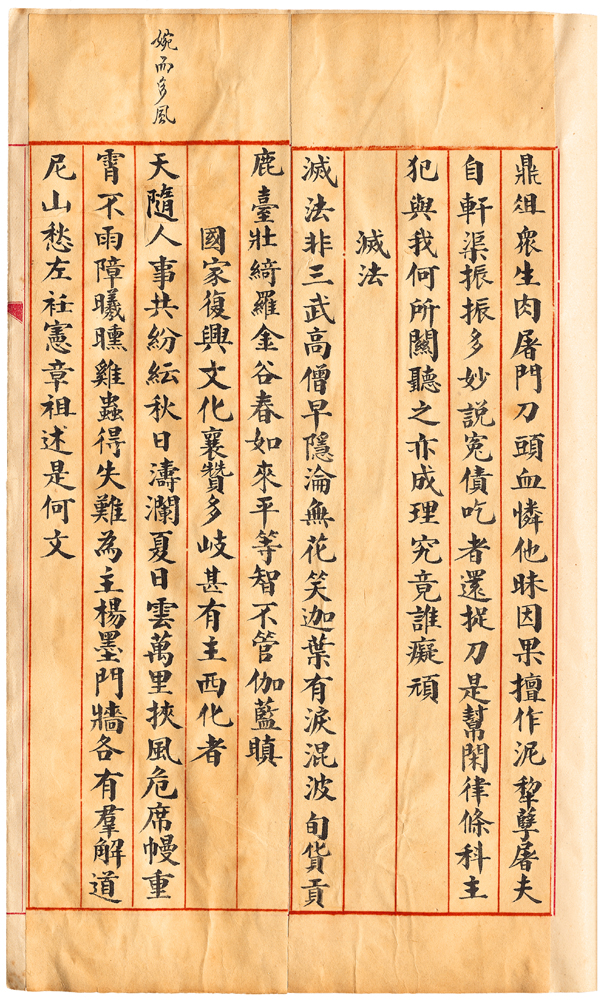 鼎俎衆生肉屠門刀頭血憐他昧因果擅作泥犂孽屠夫
自軒渠振振多妙説冤債吃者還捉刀是幫閑律條科主
犯與我何所關聽之亦成理究竟誰癡頑
滅法
滅法非三武高僧早隱淪無花笑迦葉有淚混波旬貨貢
鹿臺壯綺羅金谷春如來平等智不管伽藍瞋
國家復興文化襄贊多岐甚有主西化者
婉而多風
天隨人事共紛紜秋日濤瀾夏日雲萬里挾風危席幔重
霄不雨障曦曛雞蟲得失難為主楊墨門牆各有羣解道
尼山愁左衽憲章祖述是何文